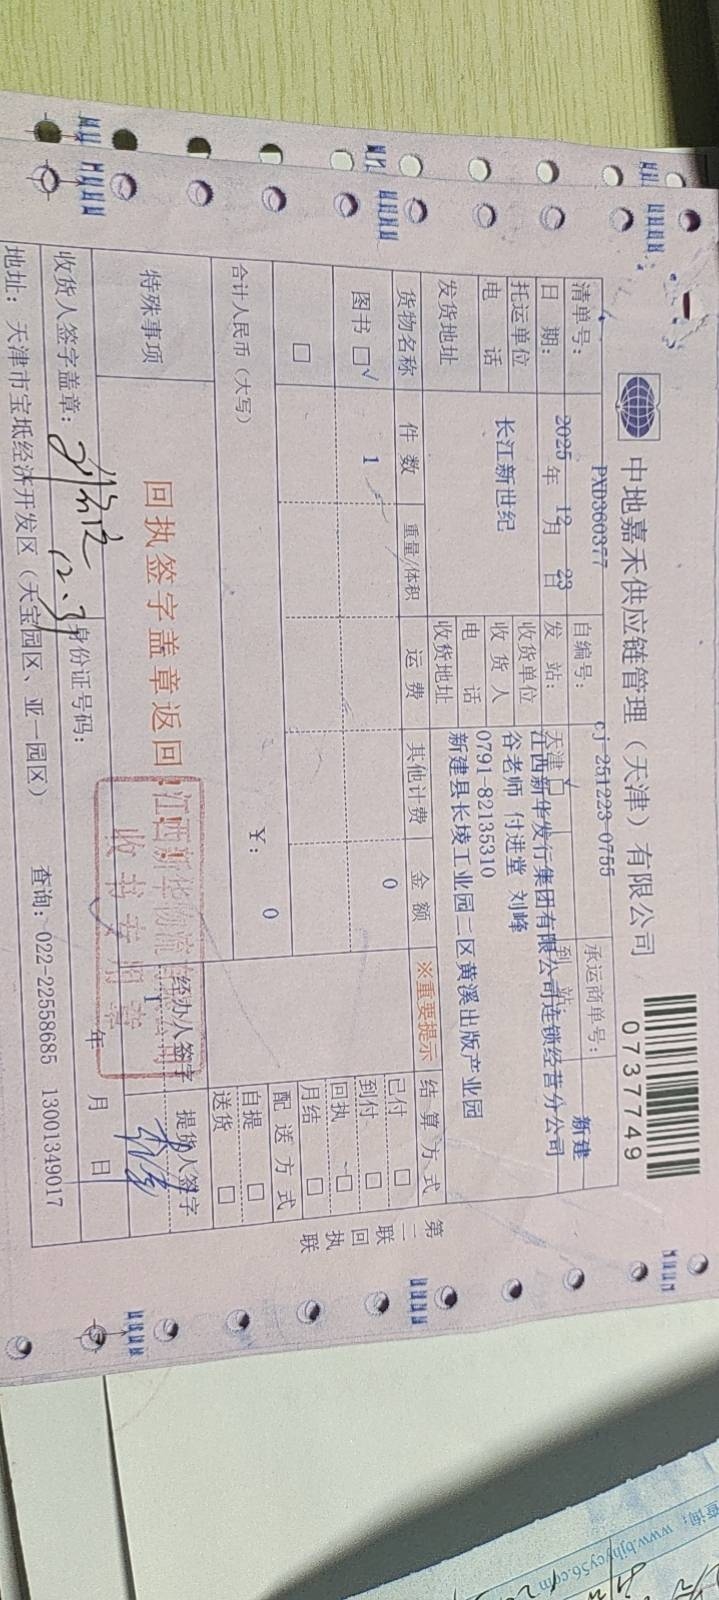 中地嘉禾供应链管理（天津）有限公司
0737749
清单号： PXD360377 自编号： cj-251223-0755 承运商单号：
日 期： 2025 年 12 月 23 日 发 站： 天津 到 站： 新建
托运单位 长江新世纪 收货单位 江西新华发行集团有限公司连锁经营分公司
收 货 人 谷老师 付进堂 刘峰
电 话 电 话 0791-82135310
发货地址 收货地址 新建县长堎工业园二区黄溪出版产业园
货物名称 件 数 重量/体积 运 费 其他计费 金 额 ※重要提示 结 算 方 式
图书 ☑ 1 0 已付 □
到付 □
□ 回执 □
月结 □
合计人民币（大写） ￥： 0 配 送 方 式
自提 □
送货 □
特殊事项 回执签字盖章返回！ 经办人签字 提货人签字
江西新华物流
收书专用章
收货人签字盖章： 身份证号码： 年 月 日
地址：天津市宝坻经济开发区（天宝园区、亚一园区） 查询：022-22558685 13001349017
第二联 回执联
查询： www.bjhycy56.com